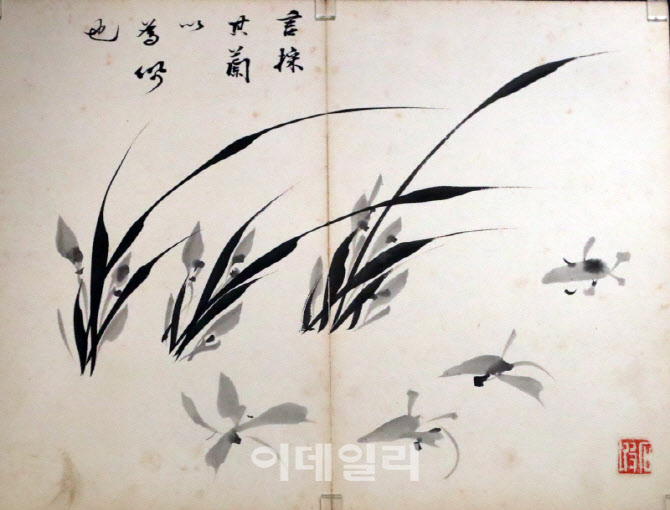 言採
其蘭
以
為佩
也
이데일리